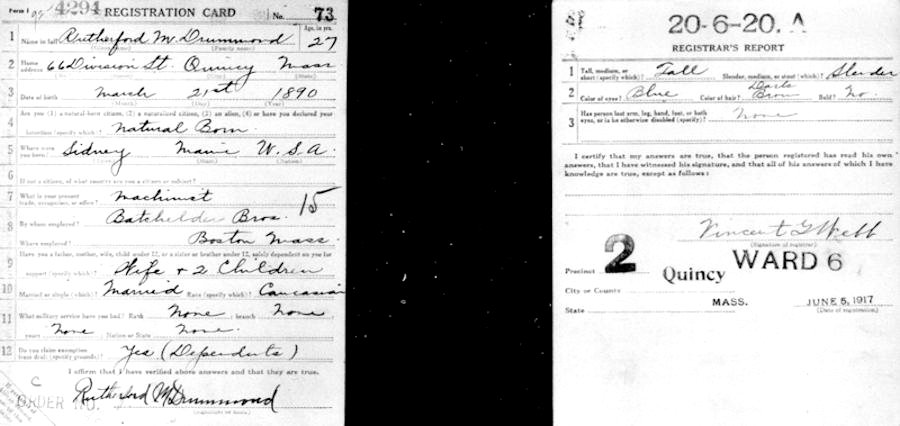 Form 1 4294 REGISTRATION CARD No. 73
Age, in yrs.
1 Name in full Rutherford M. Drummond 27
(Given name) (Family name)
2 Home address 66 Division St. Quincy Mass
(State)
3 Date of birth March 21st 1890
(Month) (Day) (Year)
Are you (1) a natural-born citizen, (2) a naturalized citizen, (3) an alien, (4) or have you declared your
4 intention (specify which)? Natural Born
5 Where were you born? Sidney Maine U.S.A.
(Town) (State) (Nation)
6 If not a citizen, of what country are you a citizen or subject?
7 What is your present trade, occupation, or office? Machinist 15
8 By whom employed? Batchelder Bros.
Where employed? Boston Mass.
Have you a father, mother, wife, child under 12, or a sister or brother under 12, solely dependent on you for
9 support (specify which)? Wife + 2 Children
10 Married or single (which)? Married Race (specify which)? Caucasian
11 What military service have you had? Rank None ; branch None
years None ; Nation or State None.
12 Do you claim exemption from draft (specify grounds)? Yes (Dependents)
I affirm that I have verified above answers and that they are true.
C
ORDER NO.
Rutherford M Drummond
20-6-20. A
REGISTRAR'S REPORT
1 Tall, medium, or short (specify which)? Tall Slender, medium, or stout (which)? Slender
2 Color of eyes? Blue Color of hair? Dark Brown Bald? No.
3 Has person lost arm, leg, hand, foot, or both eyes, or is he otherwise disabled (specify)? None
I certify that my answers are true, that the person registered has read his own
answers, that I have witnessed his signature, and that all of his answers of which I have
knowledge are true, except as follows:
Vincent G Webb
(Signature of registrar)
Precinct 2 Quincy WARD 6
City or County
State MASS. JUNE 5, 1917
(Date of registration)